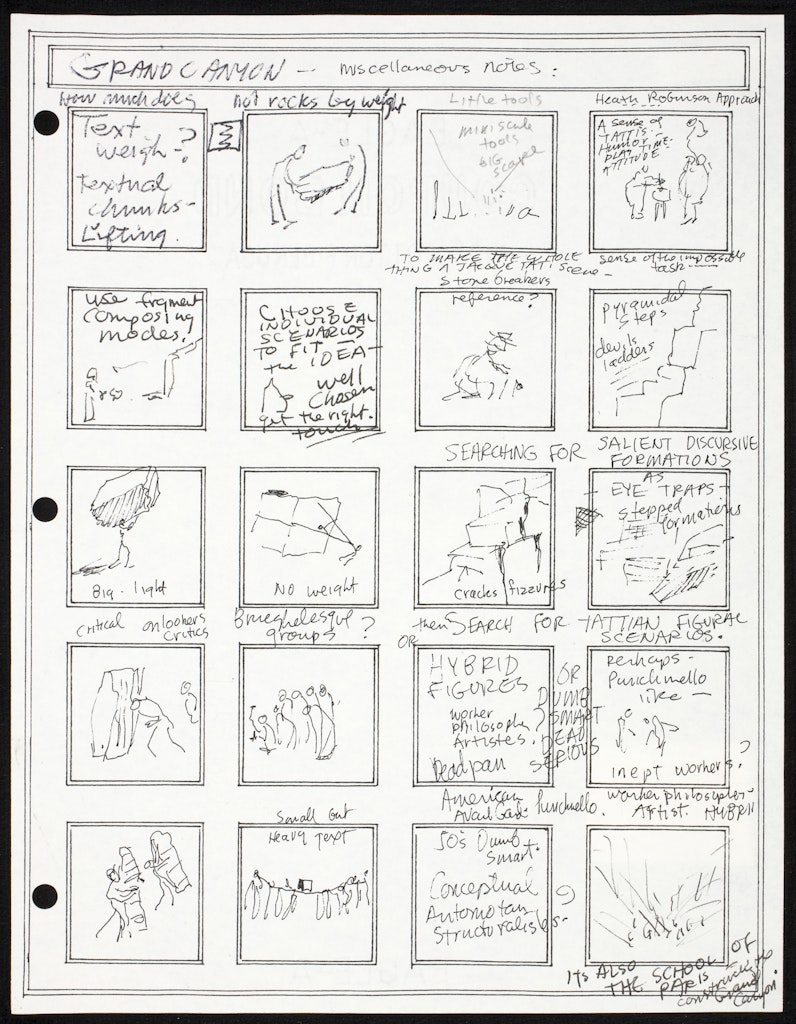 GRAND CANYON — miscellaneous notes:
How much does
Text
weigh?
Textual
chunks-
Lifting.
not rocks by weight
Little tools
miniscule
tools
BIG
scape
Heath Robinson Approach
A sense of
TATTI'S-
HUMOR-
PLAY TIME-
ATTITUDE
TO MAKE THE WHOLE
THING A JACQUE TATI Scene—
sense of the impossible
task—
use frgment
composing
modes.
CHOOSE
INDIVIDUAL
SCENARIOS
TO FIT—
the IDEA—
well
Chosen
get the right.
touch
Stone breakers
reference?
Pyramidal
steps
devils
ladders
SEARCHING FOR SALIENT DISCURSIVE
FORMATIONS
Big-light
NO weight
cracks fizzures
AS
- EYE TRAPS -
stepped
formations
then SEARCH FOR TATTIAN FIGURAL
SCENARIOS.
Critical onlookers
Critics
Brueghelesque
groups?
OR
HYBRID
FIGURES
worker
philosopher
Artistes.
Deadpan
OR
DUMB
SMART
DEAD
SERIOUS
Perhaps-
Punchinello
like —
inept workers?
American
Avant Garde Punchinello.
worker philosopher-
Artist. HYBRID
Small but
Heavy Text
50's Dumb
Smart.
Conceptual
Automotan
Structuralistes-
ITS ALSO
THE SCHOOL OF
PARIS
constructing the
Grand
Canyon.